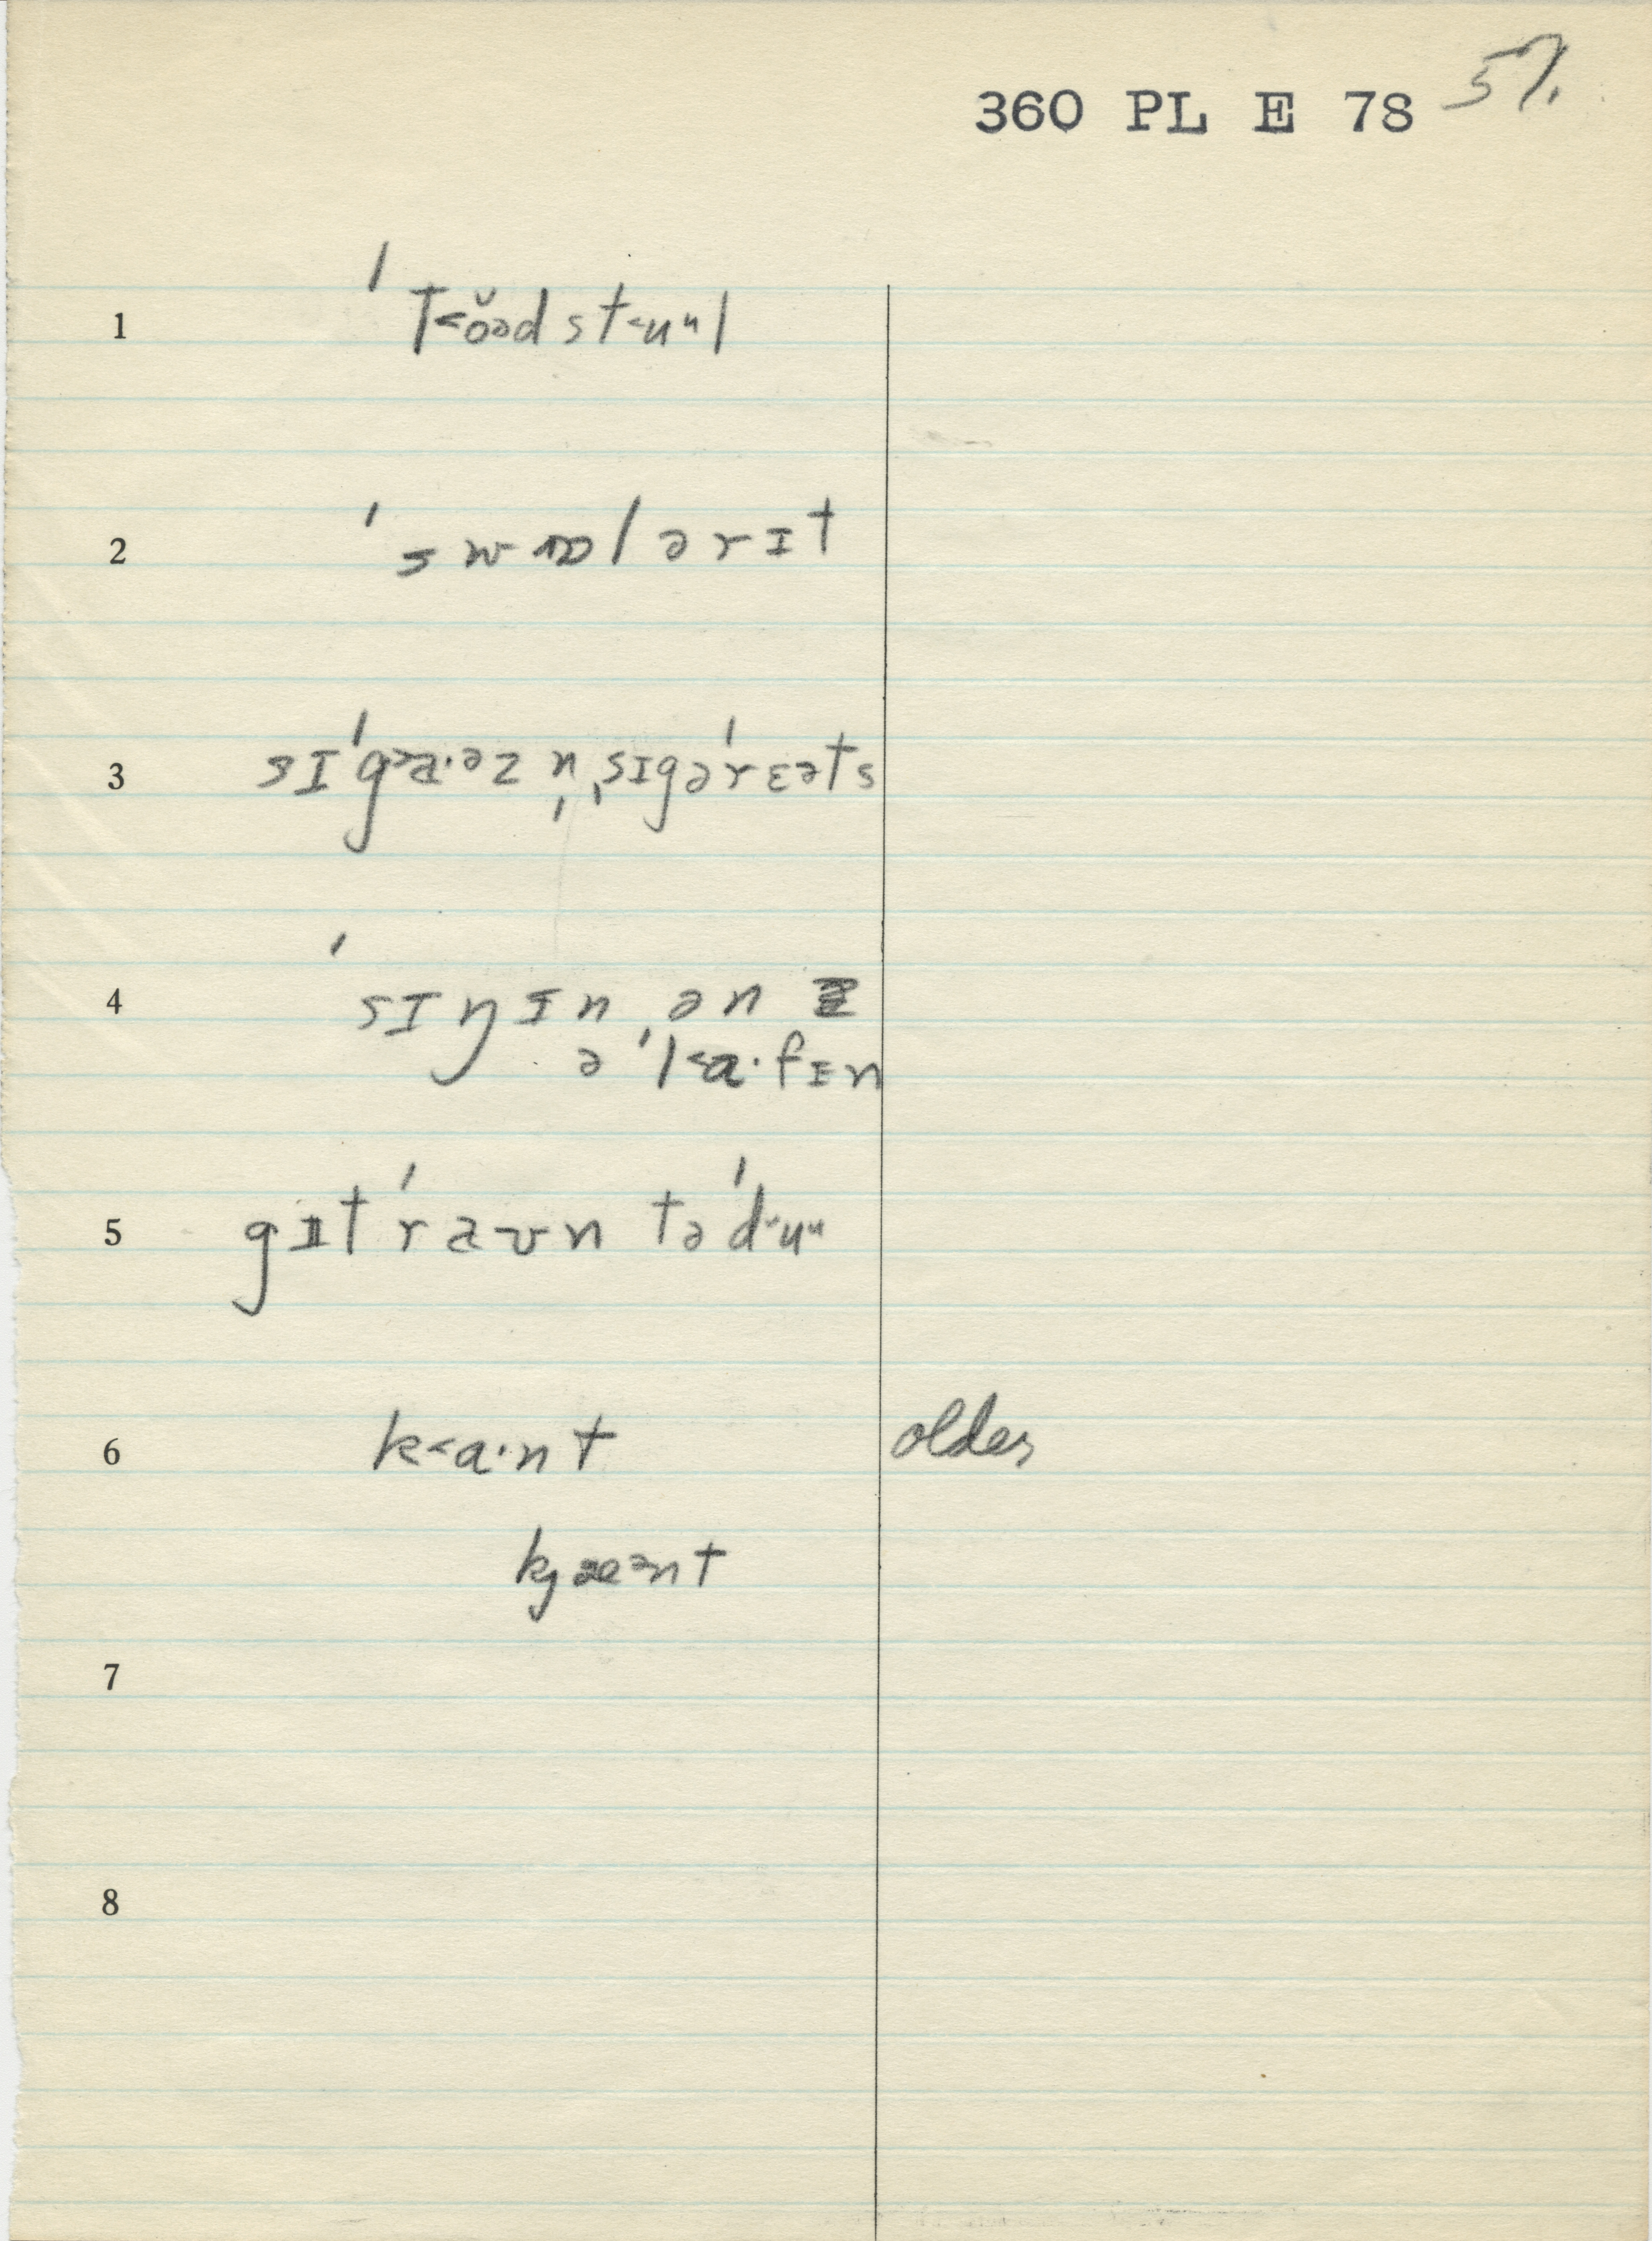 360 PL E 78 57.
1 ˈt˂ŏəd st˂uᵘl
2 ˈswɒlərɪt
3 sɪˈg˃a·əz n̩ ˌsɪgəˈrɛəts
4 ˈsɪŋɪn ˌən
ə ˈl˂a·fɪn
5 gɪtˈraʊn təˈd˂uᵘ
6 k˂a·nt older
kjæᵊnt
7
8